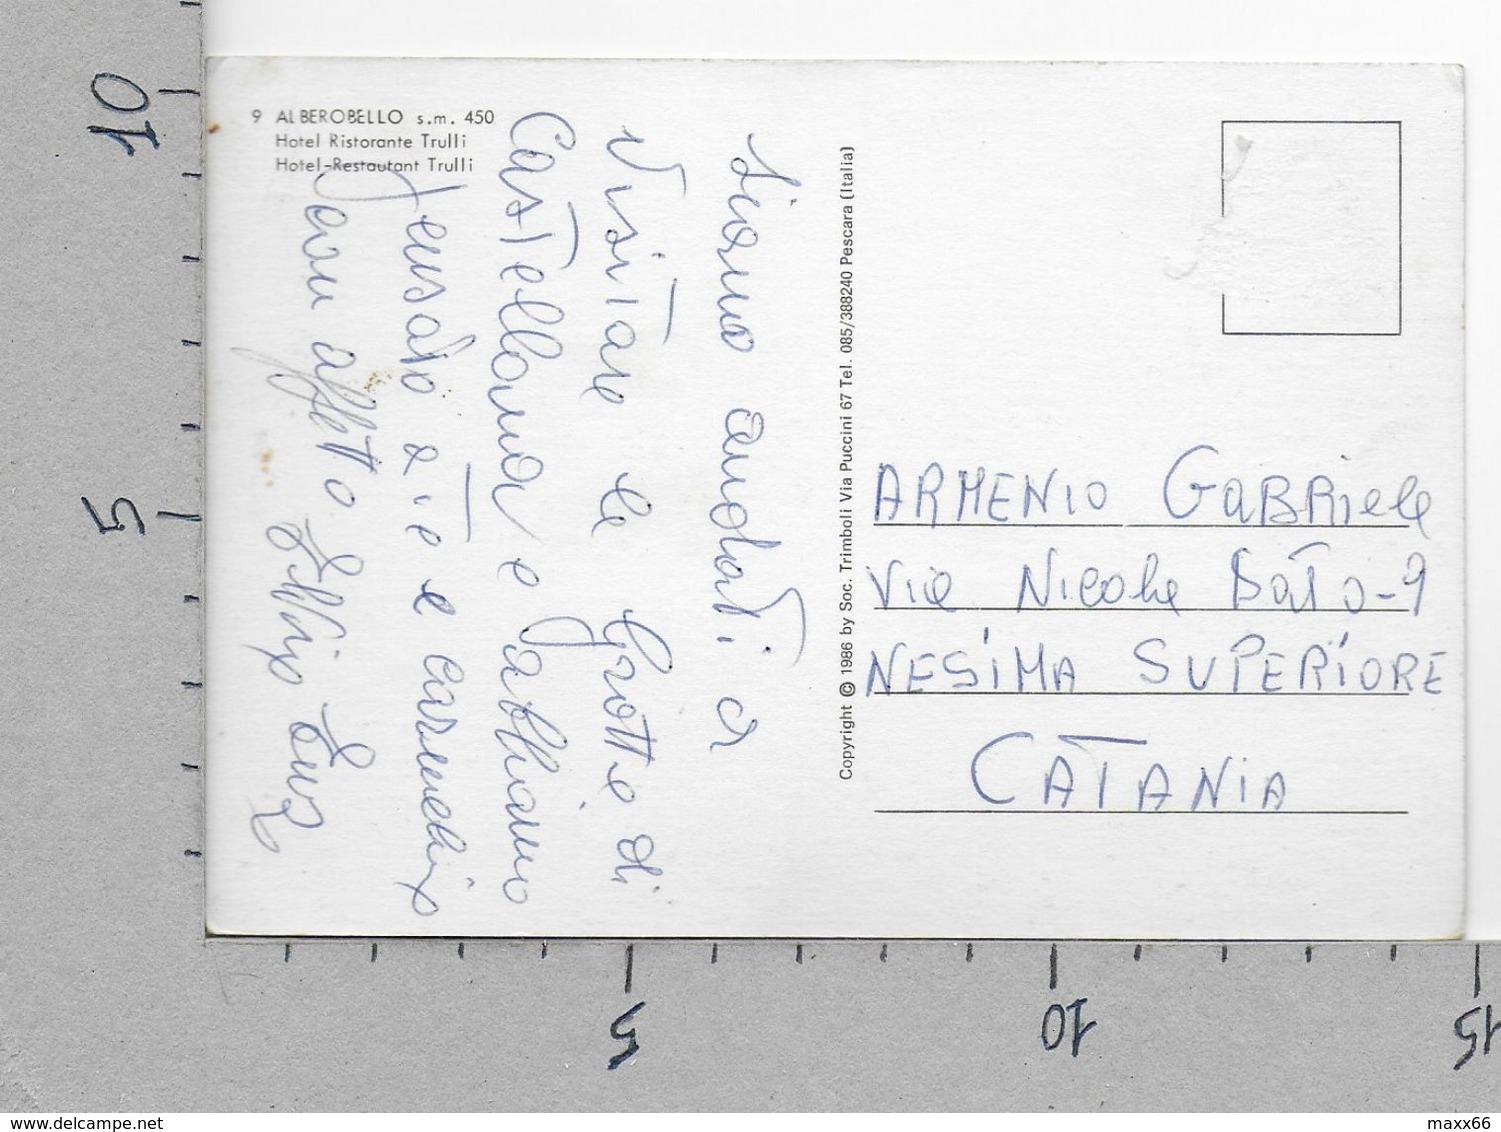 9 ALBEROBELLO s.m. 450
Hotel Ristorante Trulli
Hotel-Restaurant Trulli
Siamo andati a
visitare le Grotte di
Castellana e abbiamo
Pensato a te e
Con affetto
Copyright © 1986 by Soc. Trimboli Via Puccini 67 Tel. 085/388240 Pescara (Italia)
ARMENIO GABRiele
Via Nicola
NESiMA SUPERiORE
CATANiA
10
5
5
10
15
maxx66
delcampe.net